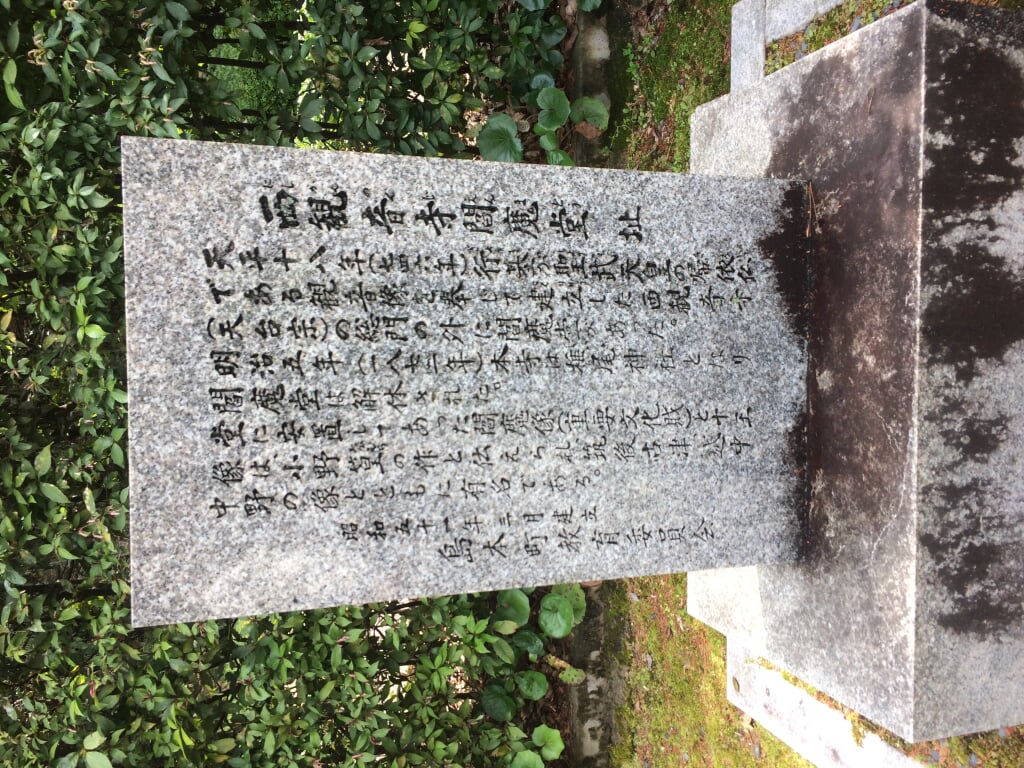 西観音寺閻魔堂址
天平十八年(七四六年)行基が聖武天皇の帰依仏
である観音像を奉じて建立した西観音寺
(天台宗)の総門の外に閻魔堂があった。
明治五年(一八七二年)本寺は椎尾神社となり
閻魔堂は解体された。
堂に安置してあった閻魔像(重要文化財)と十王
像は、小野篁の作と伝えられ筑後
中野の像とともに有名である。
昭和五十一年三月建立
島本町教育委員会